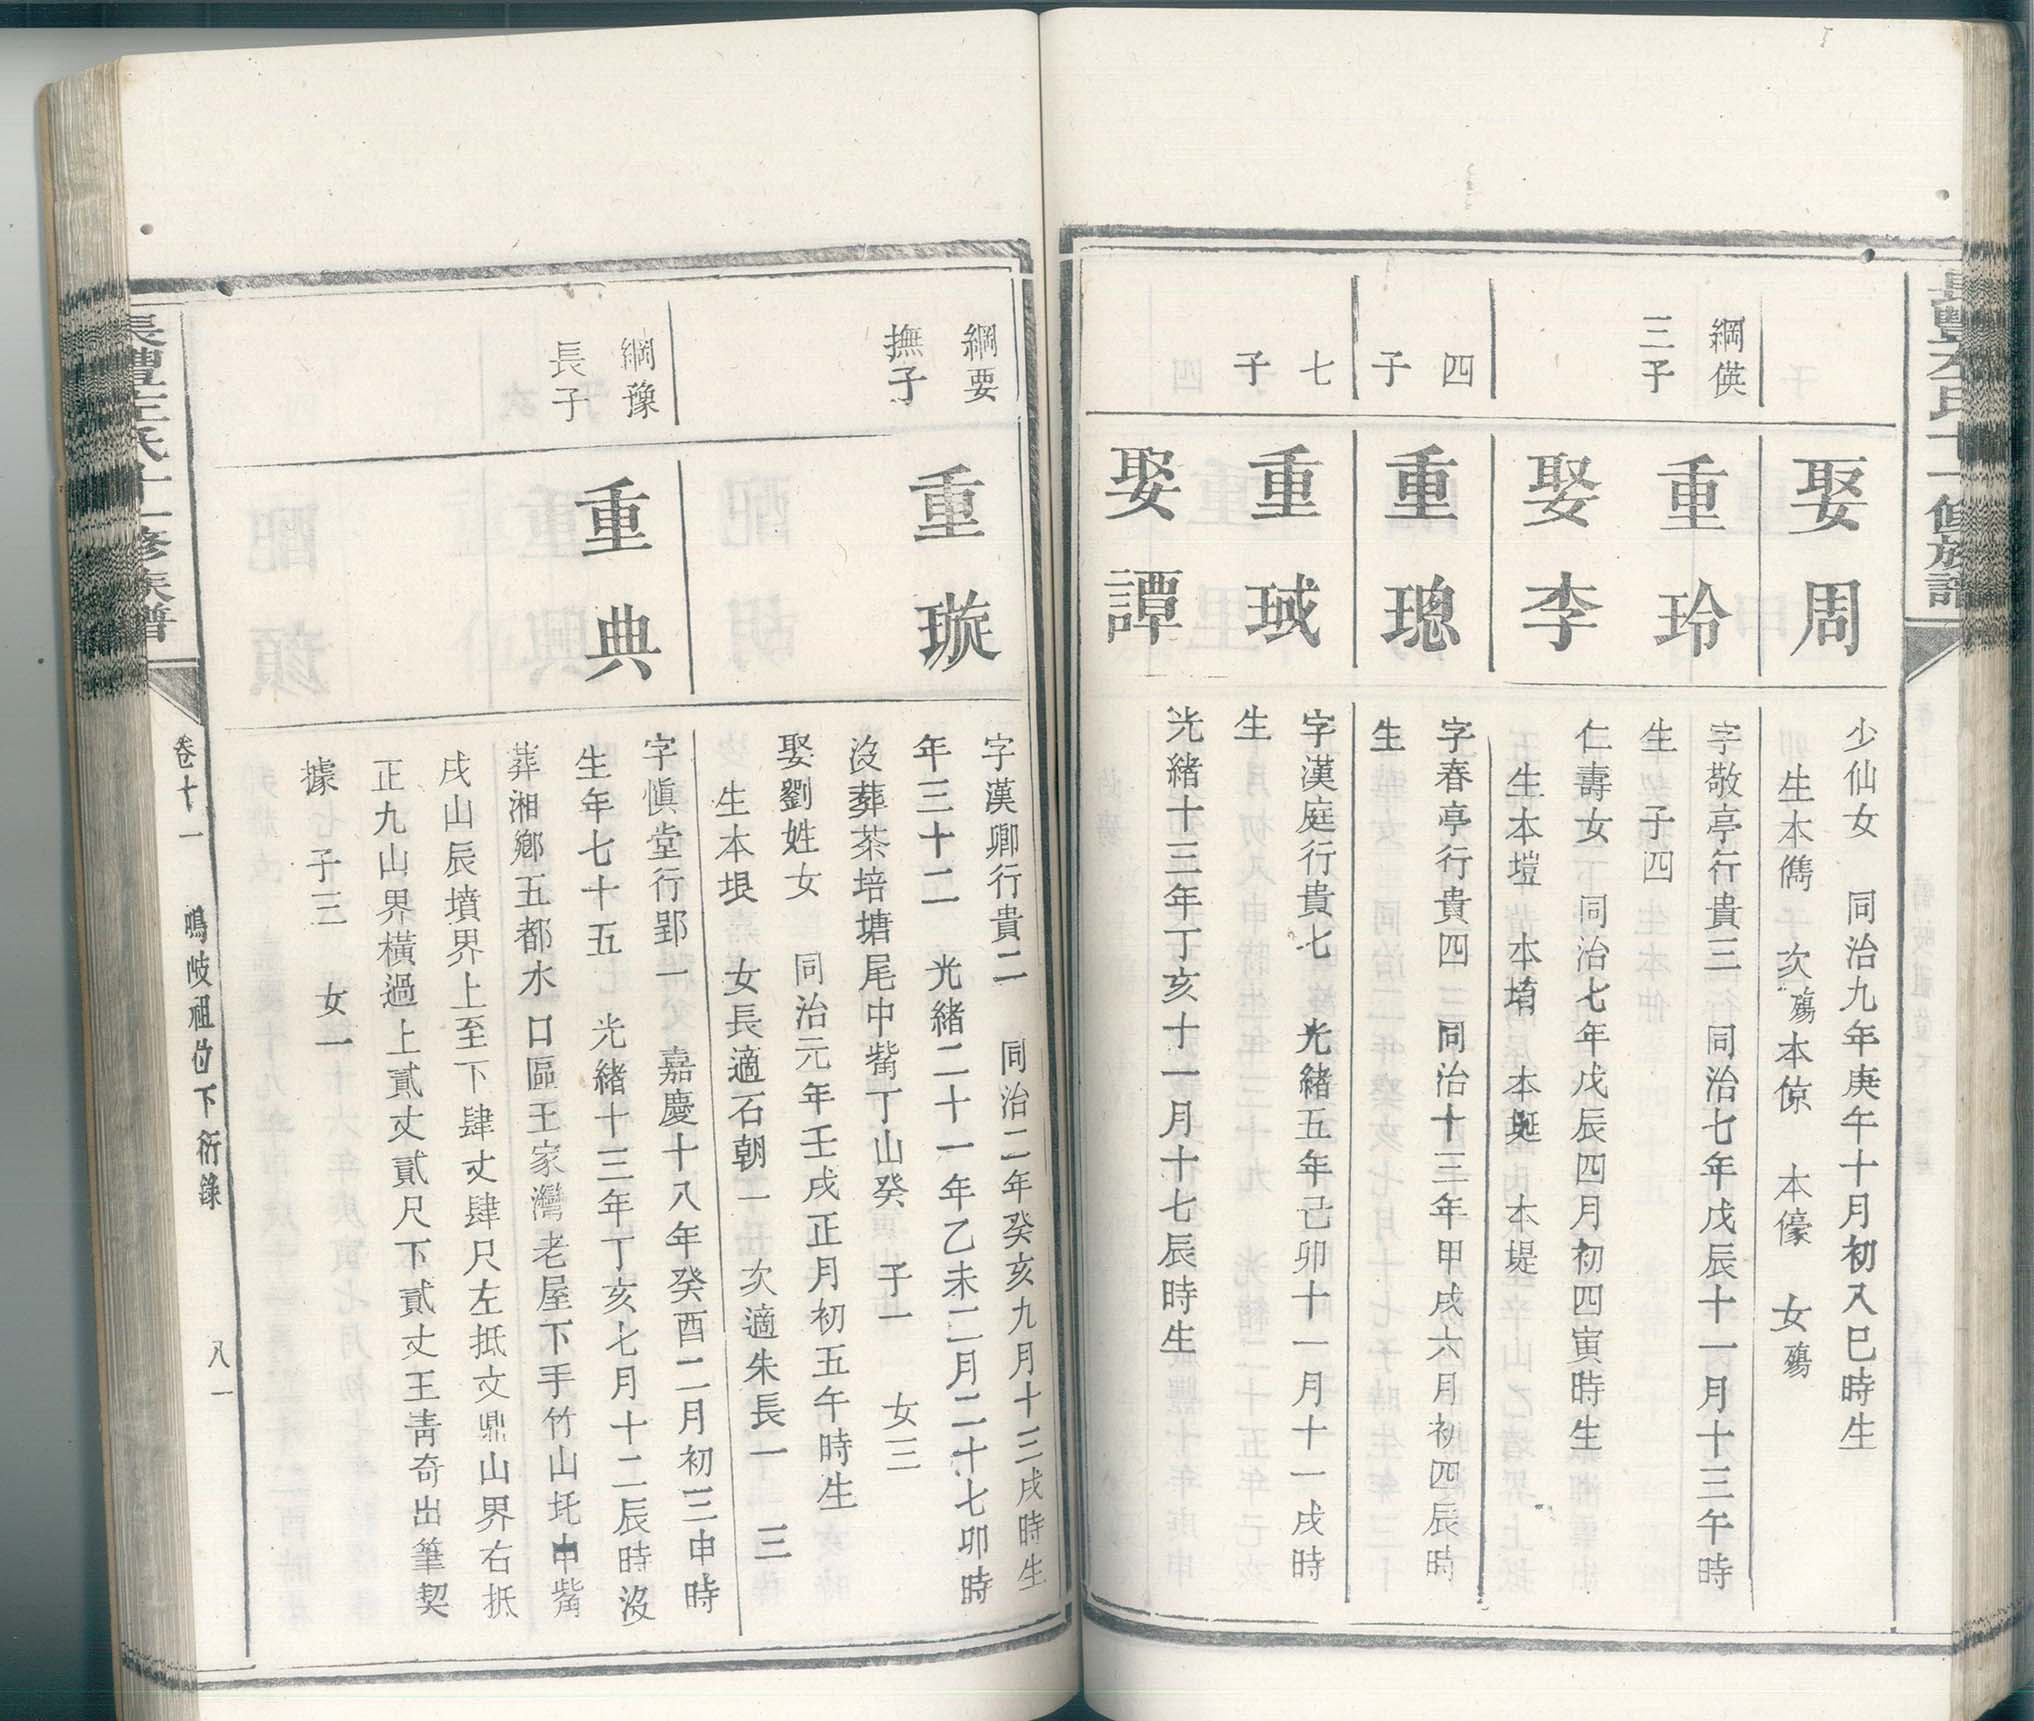 娶周
少仙女　同治九年庚午十月初八巳時生
生本儁　次殤本倞　本儫　女殤
綱偀
三子
重玲
字敬亭行貴三　同治七年戊辰十一月十三午時
生　子四
娶李
仁壽女　同治七年戊辰四月初四寅時生
生本塏　本堉　本堤
四
子
重璁
字春亭行貴四　同治十三年甲戌六月初四辰時
生
七
子
重珹
字漢庭行貴七　光緒五年己卯十一月十一戌時
生
娶譚
光緒十三年丁亥十一月十七辰時生
綱要
撫子
重璇
字漢卿行貴二　同治二年癸亥九月十三戌時生
年三十二　光緒二十一年乙未二月二十七卯時
沒葬茶培塘尾中觜丁山癸　子一　女三
娶劉姓女　同治元年壬戌正月初五午時生
生本垠　女長適石朝一　次適朱長一　三
綱豫
長子
重典
字愼堂行郢一　嘉慶十八年癸酉二月初三申時
生年七十五　光緒十三年丁亥七月十二辰時沒
葬湘鄉五都水口區王家灣老屋下手竹山坨中觜
戌山辰墳界上至下肆丈肆尺左抵文鼎山界右抵
正九山界橫過上貳丈貳尺下貳丈王靑奇出筆契
據　子三　女一
氏十一修族譜
卷十一　鳴岐祖位下衍錄　八一